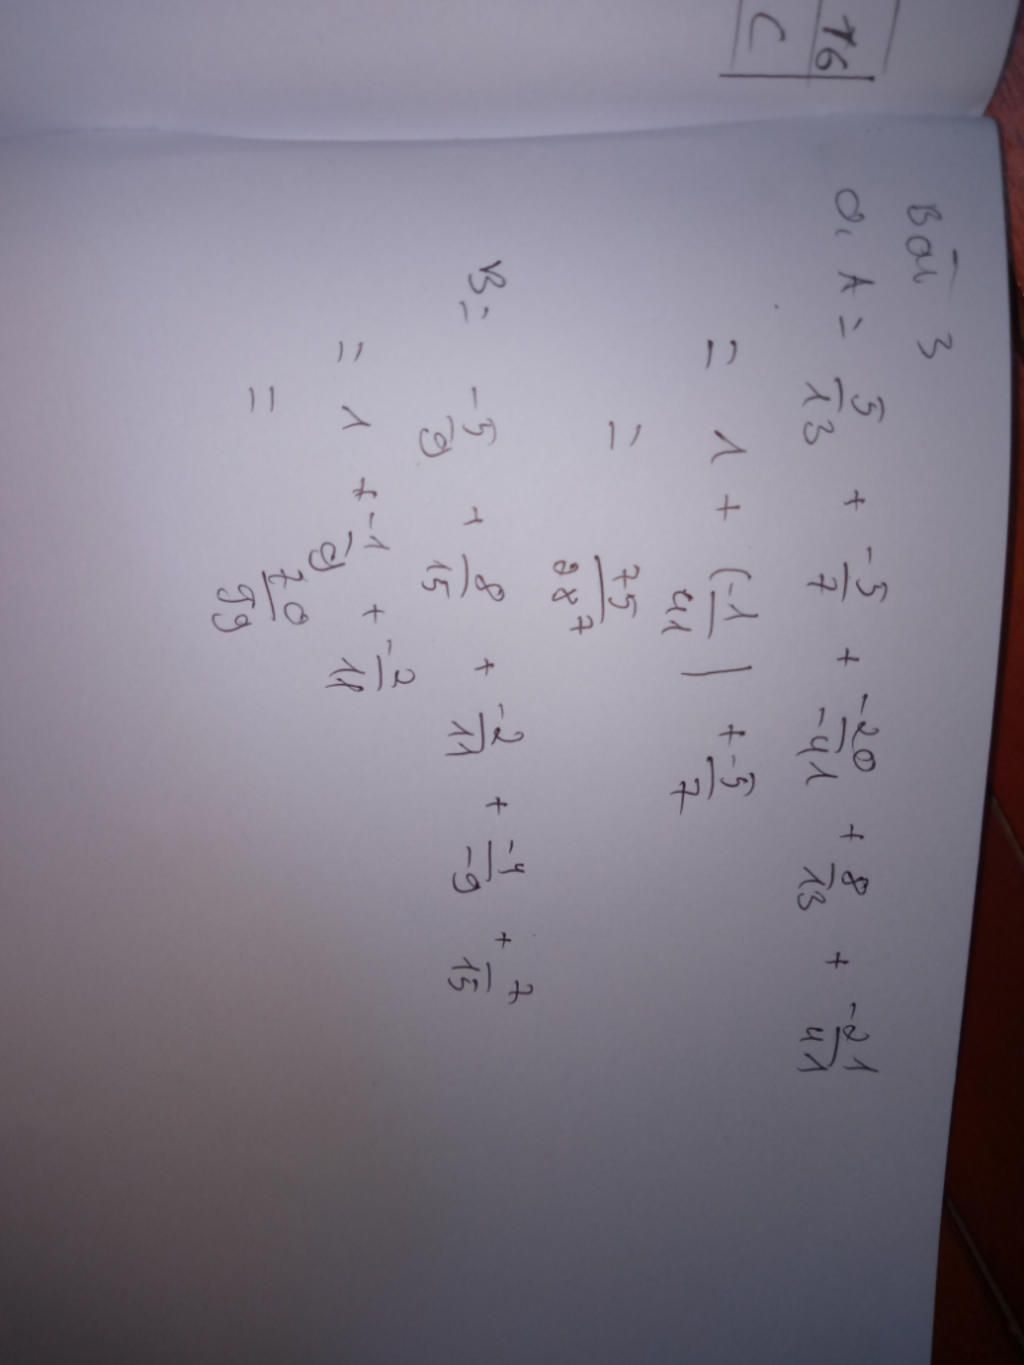 16
C
Bài 3
a, A = 5/13 + -5/7 + -20/-41 + 8/13 + -21/41
= 1 + (-1/41) + -5/7
= 75/287
B = -5/9 + 8/15 + -2/11 + -4/-9 + 7/15
= 1 + -1/9 + -2/11
= 70/99